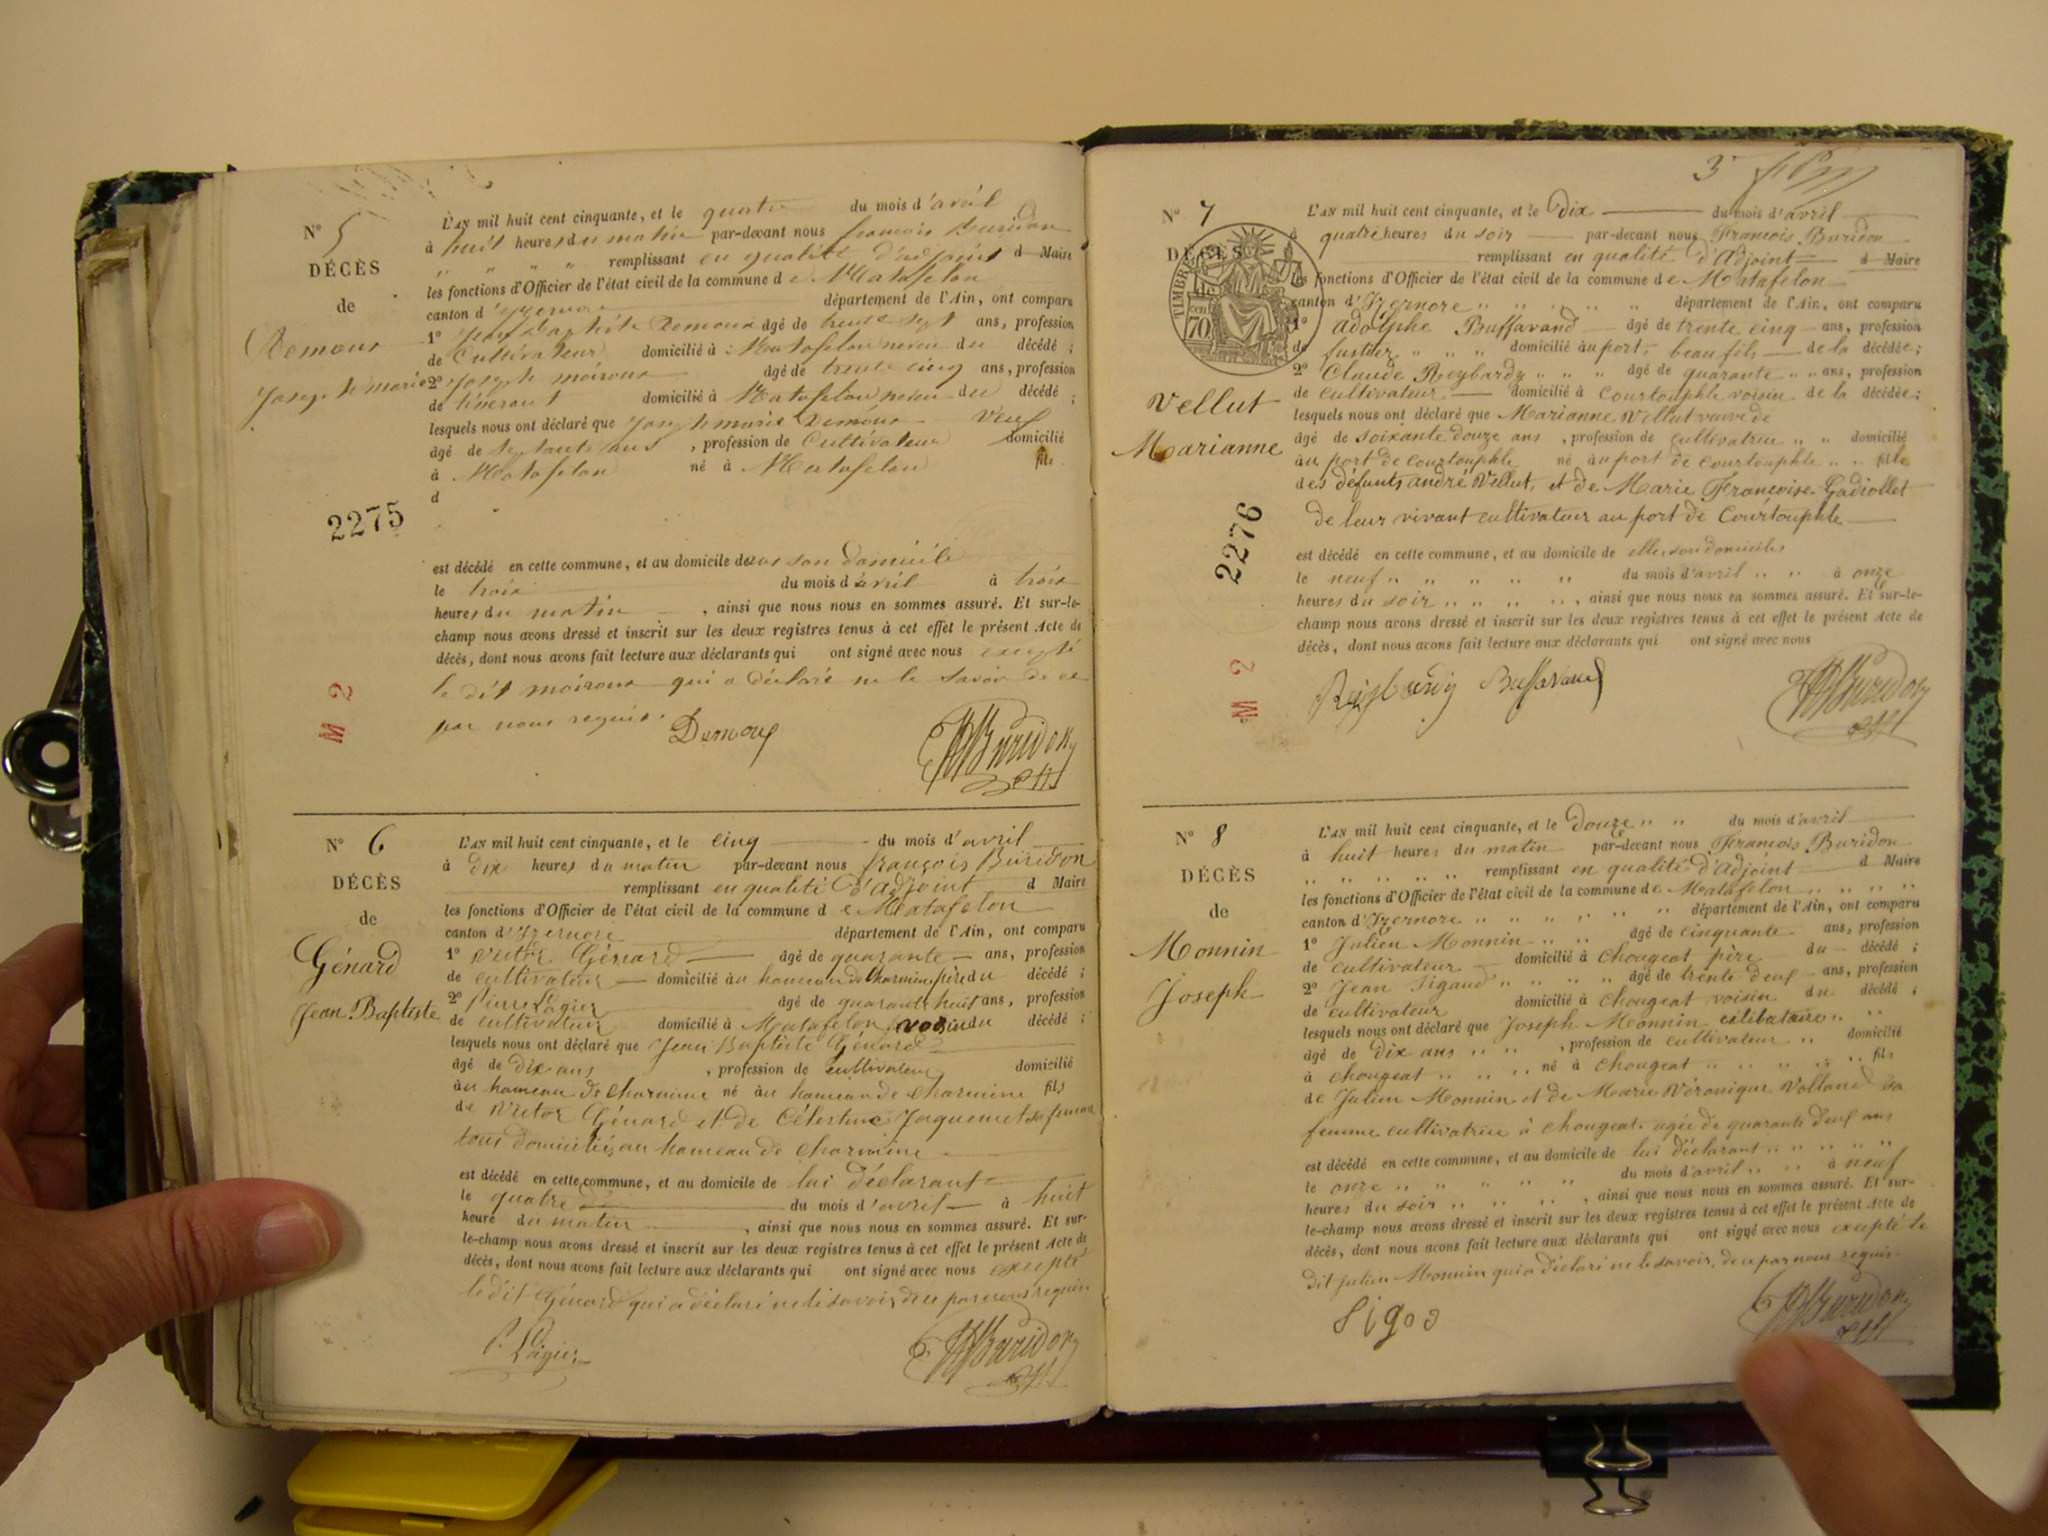 N° 5
DÉCÈS
de
Demoux
Joseph marie
2275
M 2
L'AN mil huit cent cinquante, et le quatre du mois d'avril
à huit heures du matin par-devant nous françois Buridon
" " " " remplissant en qualité d'adjoint d Maire
les fonctions d'Officier de l'état civil de la commune de Matafelon
canton d'Izernore département de l'Ain, ont comparu
1° Jean Baptiste Demoux âgé de trente sept ans, profession
de Cultivateur domicilié à Matafelon neveu du décédé ;
2° Joseph moiroux âgé de trente cinq ans, profession
de domicilié à Matafelon neveu du décédé ;
lesquels nous ont déclaré que Joseph marie Demoux veuf
âgé de septante ans , profession de Cultivateur domicilié
à Matafelon né à Matafelon fils
d
est décédé en cette commune, et au domicile de son domicile
le trois du mois d'avril à trois
heures du matin , ainsi que nous nous en sommes assuré. Et sur-le-
champ nous avons dressé et inscrit sur les deux registres tenus à cet effet le présent Acte de
décès, dont nous avons fait lecture aux déclarants qui ont signé avec nous excepté
le dit moiroux qui a déclaré ne le savoir de ce
par nous requis.
Demoux
Buridon
N° 6
DÉCÈS
de
Génard
Jean Baptiste
L'AN mil huit cent cinquante, et le cinq du mois d'avril
à dix heures du matin par-devant nous françois Buridon
remplissant en qualité d'Adjoint d Maire
les fonctions d'Officier de l'état civil de la commune d e Matafelon
canton d'Izernore département de l'Ain, ont comparu
1° Victor Génard âgé de quarante ans, profession
de cultivateur domicilié au hameau de Charmine père du décédé ;
2° Pierre Lagier âgé de quarante huit ans, profession
de cultivateur domicilié à Matafelon voisin du décédé ;
lesquels nous ont déclaré que Jean Baptiste Génard
âgé de dix ans , profession de cultivateur domicilié
au hameau de Charmine né au hameau de Charmine fils
de Victor Génard et de Célestine Jaquemet sa femme
tous domiciliés au hameau de Charmine
est décédé en cette commune, et au domicile de lui déclarant
le quatre du mois d'avril à huit
heure du matin , ainsi que nous nous en sommes assuré. Et sur-
le-champ nous avons dressé et inscrit sur les deux registres tenus à cet effet le présent Acte de
décès, dont nous avons fait lecture aux déclarants qui ont signé avec nous excepté
le dit Génard qui a déclaré ne le savoir de ce par nous requis
P. Lagier
Buridon
3
N° 7
DÉCÈS
TIMBRE
70
Vellut
Marianne
2276
M 2
L'AN mil huit cent cinquante, et le Dix du mois d'avril
à quatre heures du soir par-devant nous François Buridon
remplissant en qualité d'Adjoint d Maire
les fonctions d'Officier de l'état civil de la commune de Matafelon
canton d'Izernore " " " " " département de l'Ain, ont comparu
1° Adolphe Buffavand âgé de trente cinq ans, profession
de fustier " " " domicilié au port, beau fils de la décédée ;
2° Claude Reybardy " " " âgé de quarante " " ans, profession
de cultivateur domicilié à Courtouphle voisin de la décédée ;
lesquels nous ont déclaré que Marianne Vellut veuve de
âgé de soixante douze ans , profession de cultivatrice " " domicilié
au port de Courtouphle né au port de Courtouphle " " fille
des défunts andré Vellut, et de Marie Françoise Gadiollet
de leur vivant cultivateur au port de Courtouphle
est décédé en cette commune, et au domicile de elle, son domicile
le neuf " " " " " du mois d'avril " " à onze
heures du soir " " " " , ainsi que nous nous en sommes assuré. Et sur-le-
champ nous avons dressé et inscrit sur les deux registres tenus à cet effet le présent Acte de
décès, dont nous avons fait lecture aux déclarants qui ont signé avec nous
Reybardy Buffavand
Buridon
N° 8
DÉCÈS
de
Monnin
Joseph
L'AN mil huit cent cinquante, et le douze " " du mois d'avril
à huit heures du matin par-devant nous François Buridon
" " " " " remplissant en qualité d'Adjoint d Maire
les fonctions d'Officier de l'état civil de la commune de Matafelon " " " "
canton d'Izernore " " " " " " département de l'Ain, ont comparu
1° Julien Monnin " " " âgé de cinquante ans, profession
de cultivateur domicilié à Chougeat père du décédé ;
2° Jean Sigaud " " " " âgé de trente deux ans, profession
de cultivateur domicilié à Chougeat voisin du décédé ;
lesquels nous ont déclaré que Joseph Monnin célibataire " "
âgé de dix ans " " , profession de cultivateur " domicilié
à Chougeat " " " né à Chougeat " " " " " fils
de Julien Monnin et de Marie Véronique Volland sa
femme cultivatrice à Chougeat, agée de quarante deux ans
est décédé en cette commune, et au domicile de lui déclarant " " " "
le onze " " " " " du mois d'avril " " à neuf
heures du soir " " " " , ainsi que nous nous en sommes assuré. Et sur-
le-champ nous avons dressé et inscrit sur les deux registres tenus à cet effet le présent Acte de
décès, dont nous avons fait lecture aux déclarants qui ont signé avec nous excepté le
dit julien Monnin qui a déclaré ne le savoir, de ce par nous requis
Sigod
Buridon